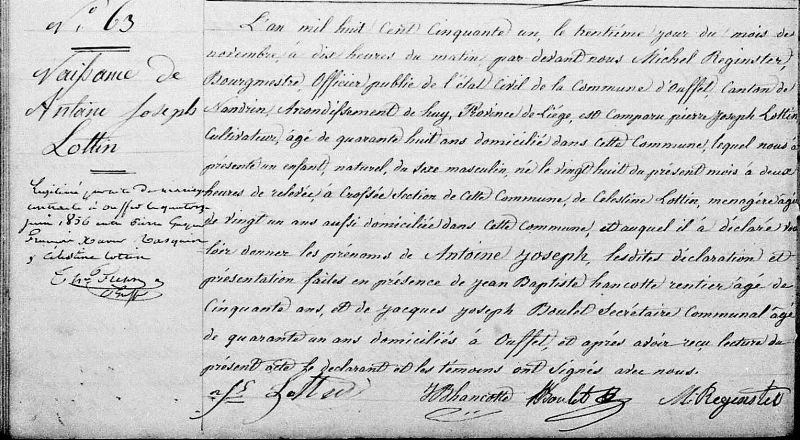 N.° 63
Naissance de
Antoine Joseph
Lottin
Légitimé par le mariage
contracté à Ouffet le quatorze
juin 1856 entre Pierre
François Xavier
& Célestine Lottin
L'an mil huit Cent Cinquante un, le trentième jour du mois de
novembre, à dix heures du matin, par devant nous Michel Reginster,
Bourgmestre, Officier public de l'état Civil de la Commune d'Ouffet, Canton de
Nandrin, Arrondissement de huy, Province de Liége, est Comparu pierre Joseph Lottin
Cultivateur, âgé de quarante huit ans domicilié dans cette Commune, lequel nous a
présenté un enfant, naturel, du sexe masculin, né le vingt huit du présent mois à deux
heures de relevée, à Crossée Section de Cette Commune, de Célestine Lottin, menagère âgée
de vingt un ans aussi domiciliée dans cette Commune, et auquel il a déclaré vou
loir donner les prénoms de Antoine Joseph, lesdites déclaration et
présentation faites en présence de jean Baptiste hancotte rentier âgé de
Cinquante ans, et de jacques joseph Boulet Secrétaire Communal âgé
de quarante un ans domiciliés à Ouffet et après avoir reçu lecture du
présent acte le déclarant et les témoins ont signés avec nous.
JBhancotte Boulet M. Reginster